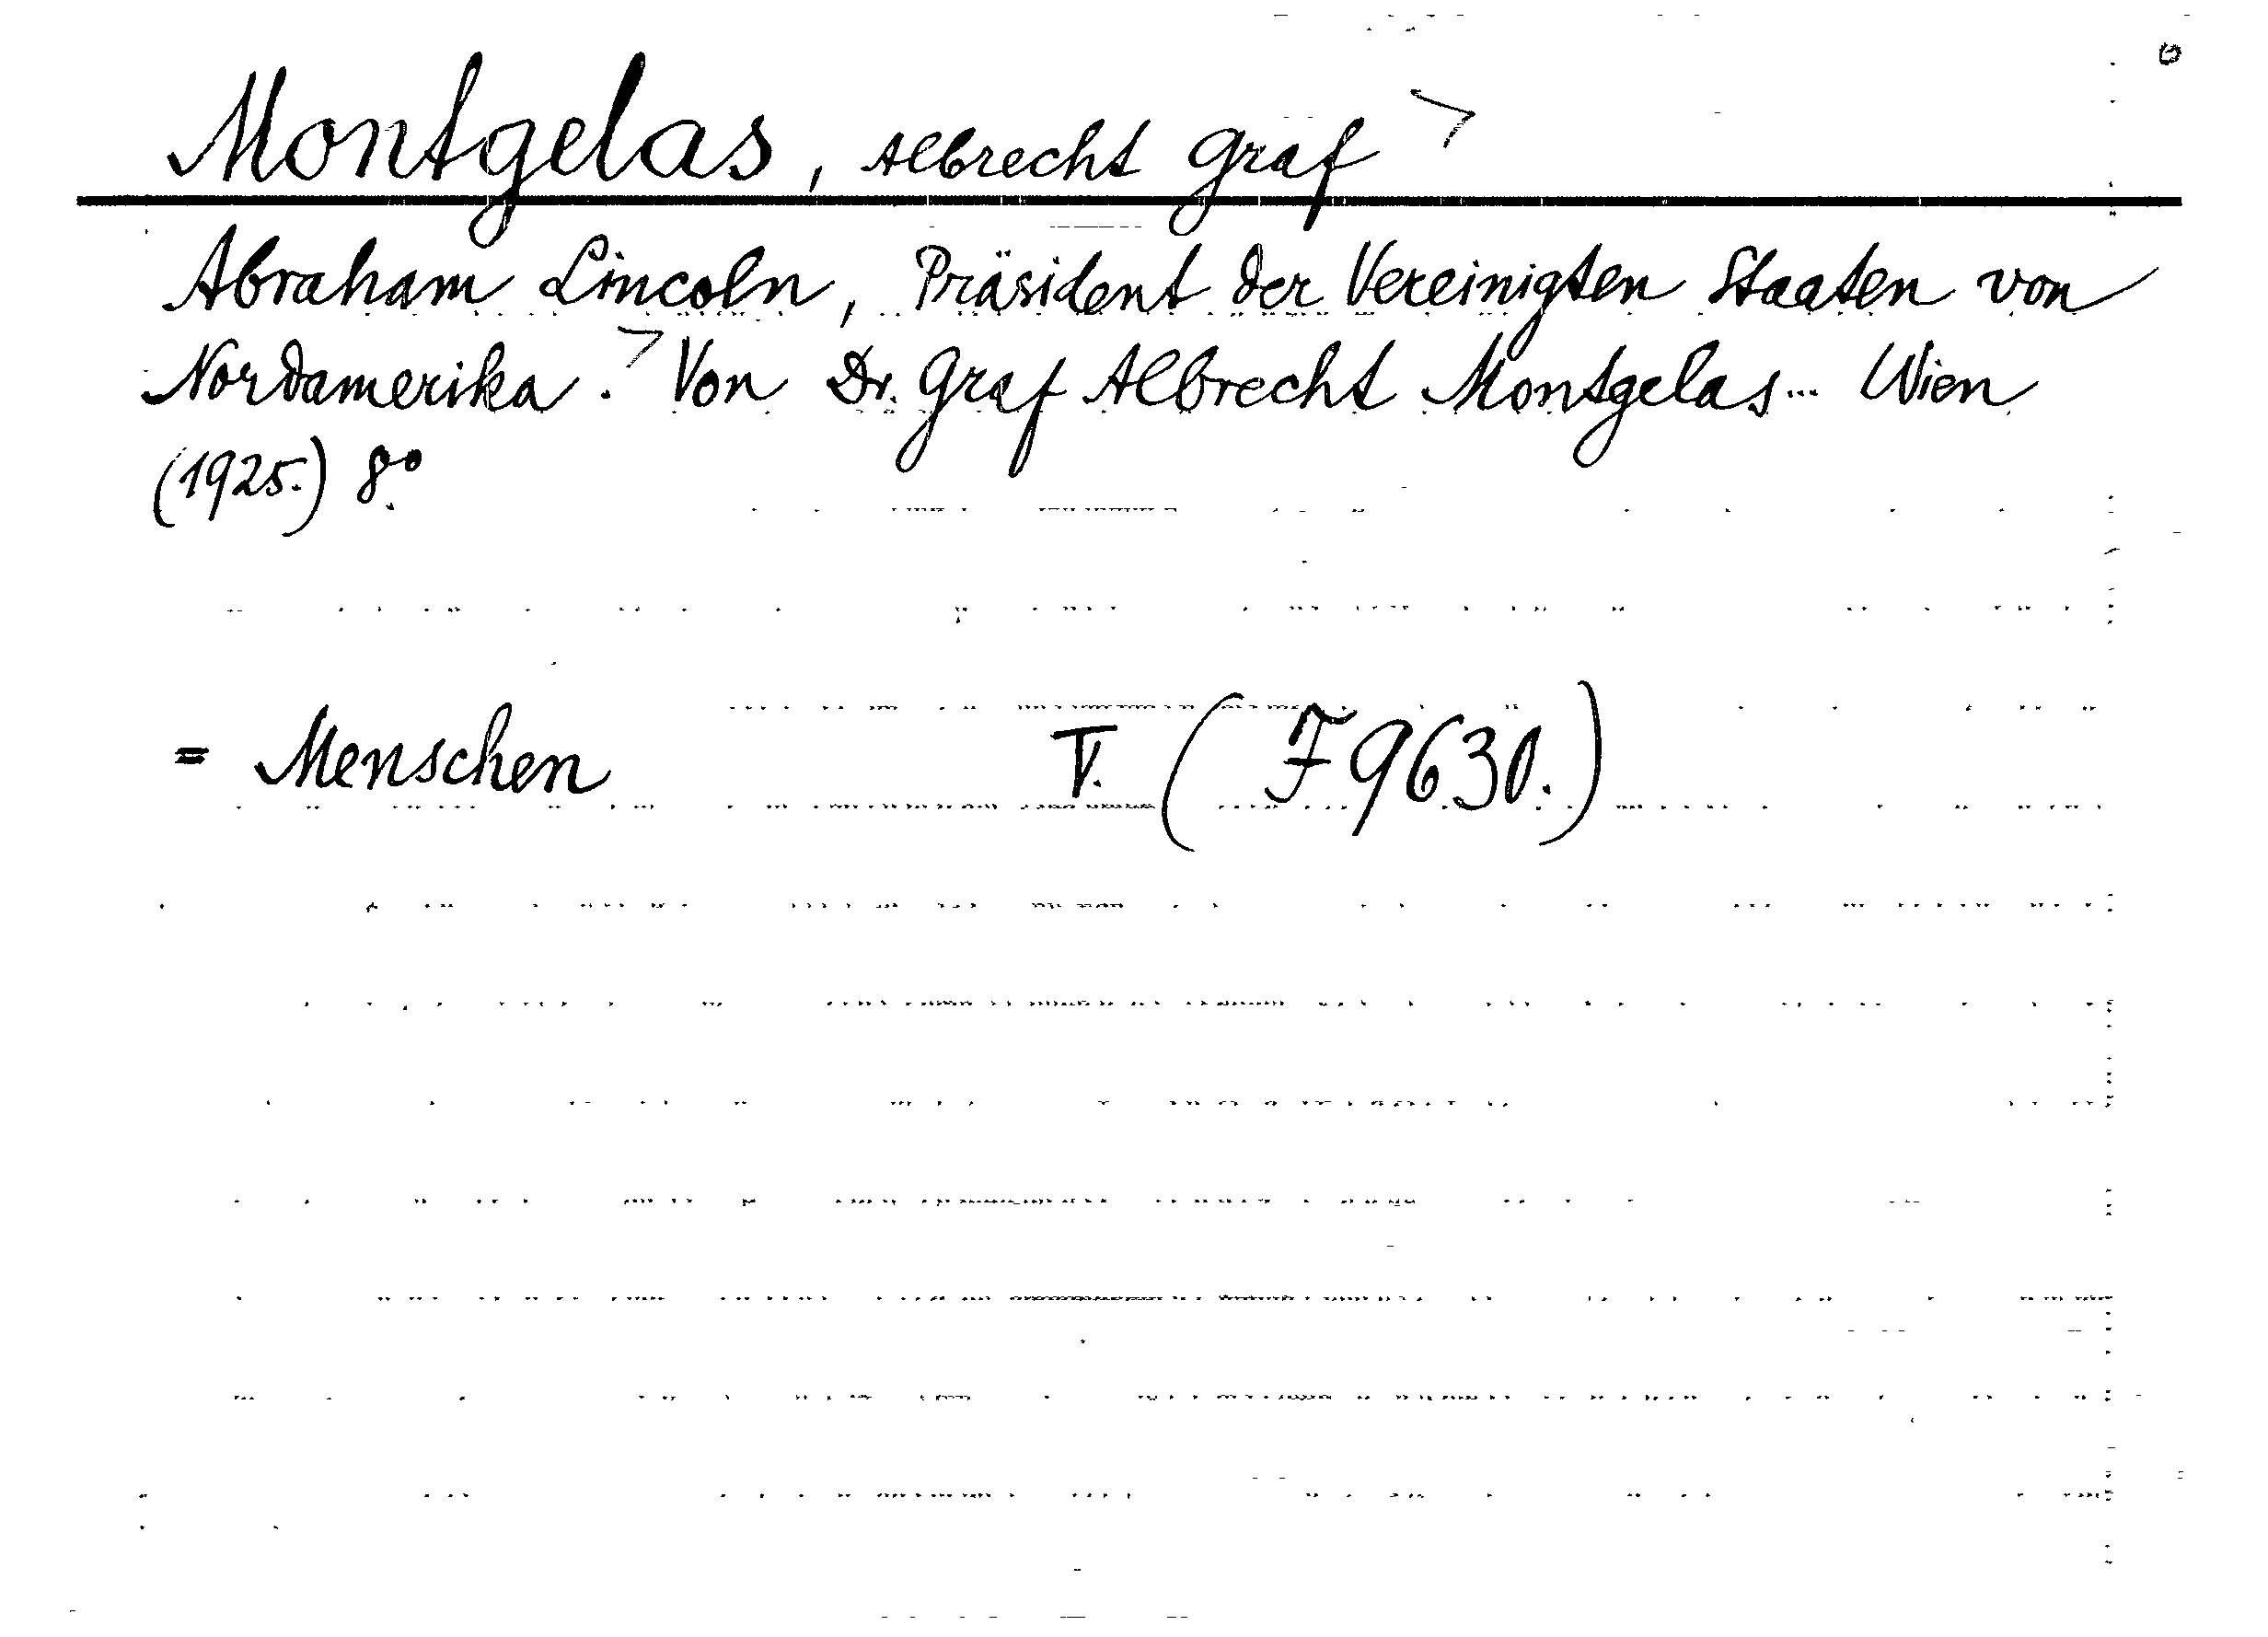 Montgelas, Albrecht Graf
Abraham Lincoln, Präsident der Vereinigten Staaten von
Nordamerika. Von Dr. Graf Albrecht Montgelas... Wien
(1925.) 8°.
= Menschen V. (F 9630.)